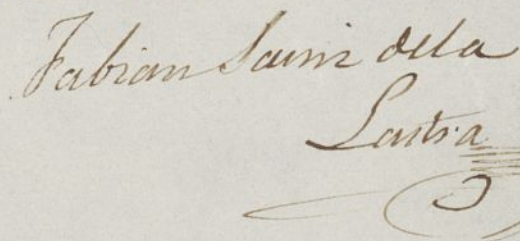 Fabian Sainz dela
Lastra